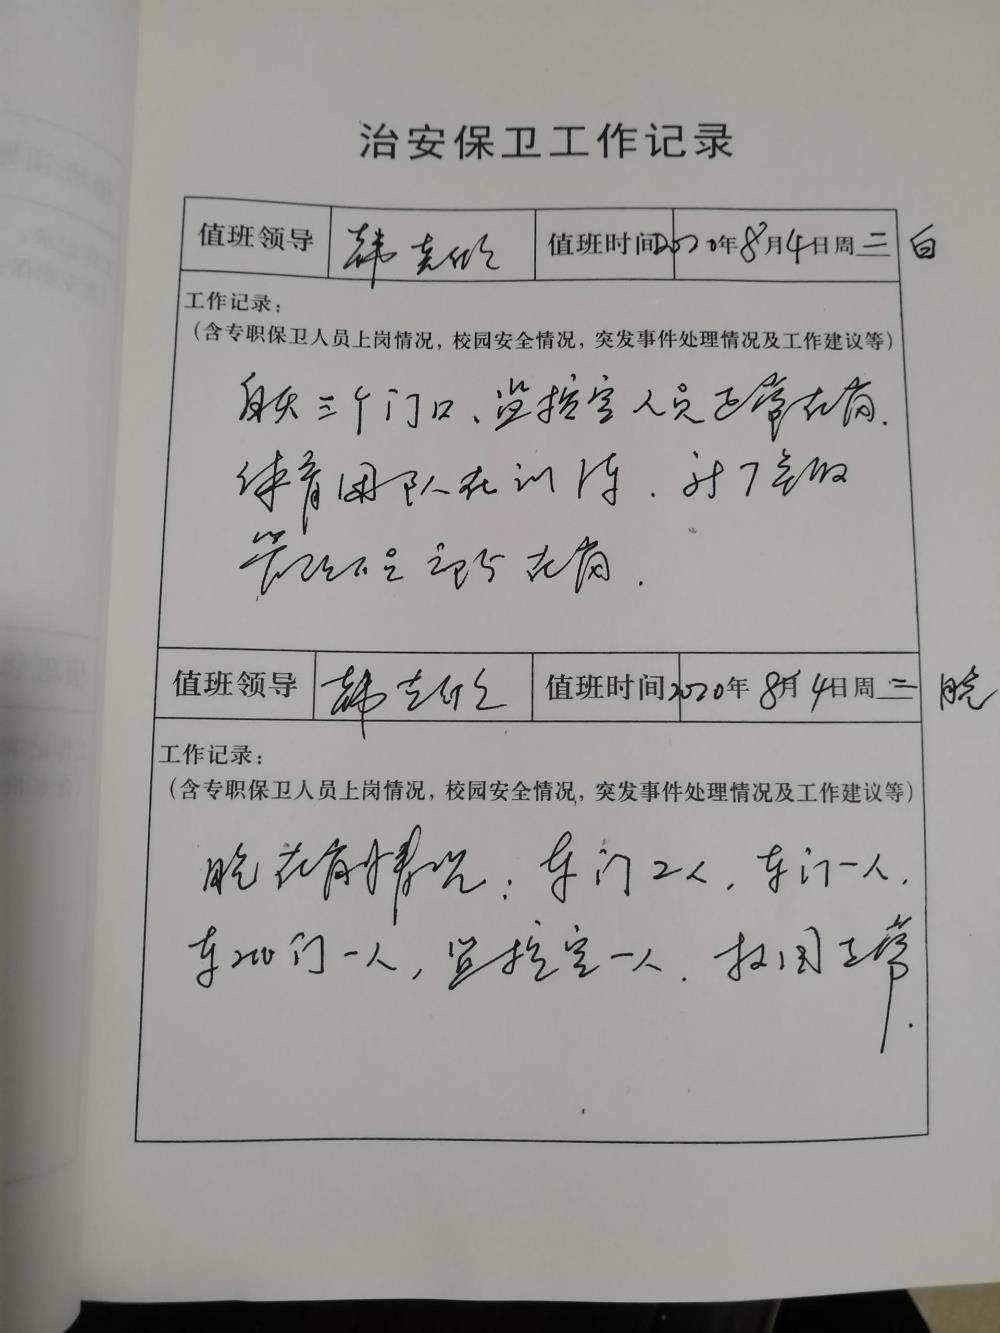 治安保卫工作记录
值班领导 韩 值班时间 2020年8月4日周二 白
工作记录：
（含专职保卫人员上岗情况，校园安全情况，突发事件处理情况及工作建议等）
白天三个门口、监控室人员正常在岗.
体育团队在训练.
在岗.
值班领导 韩 值班时间 2020年8月4日周二 晚
工作记录：
（含专职保卫人员上岗情况，校园安全情况，突发事件处理情况及工作建议等）
晚在岗情况：车门2人，车门一人，
门一人，监控室一人. 校园正常.